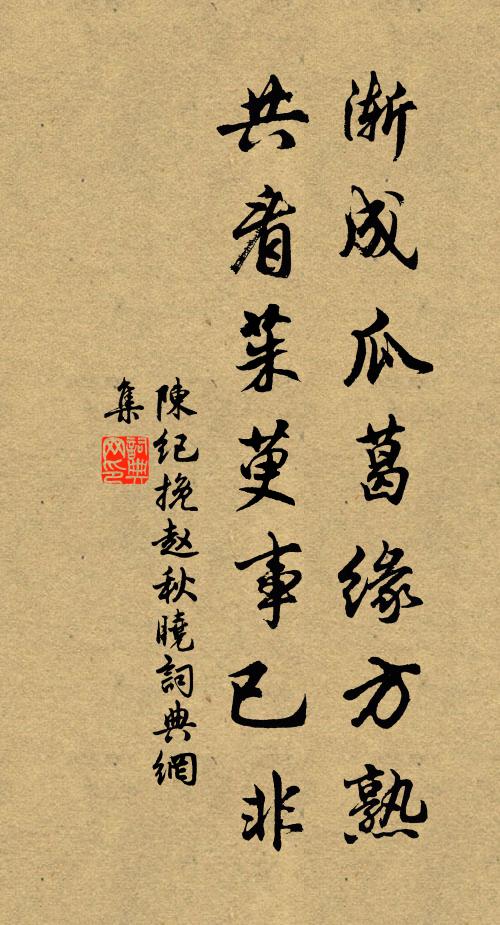 渐成瓜葛缘方熟
共看茱萸事已非
陳紀挽赵秋曉詞典網
集
詞典网印